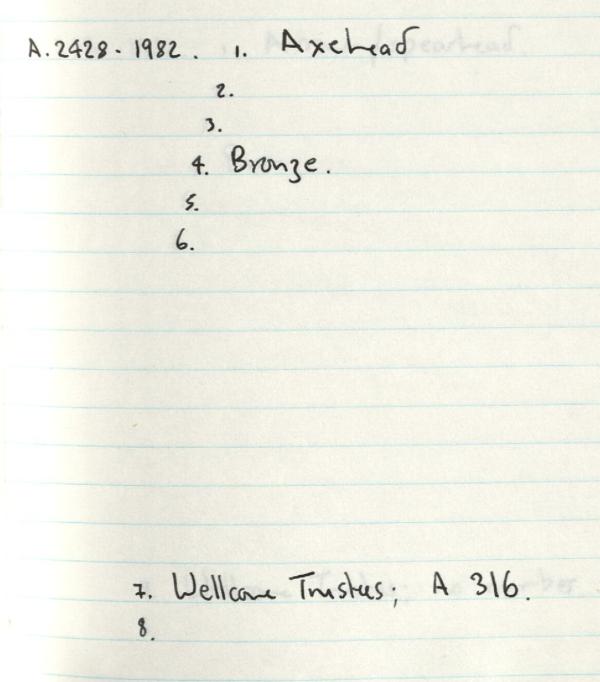 A.2428-1982. 1. Axehead
2.
3.
4. Bronze.
5.
6.
7. Wellcome Trustees; A 316.
8.